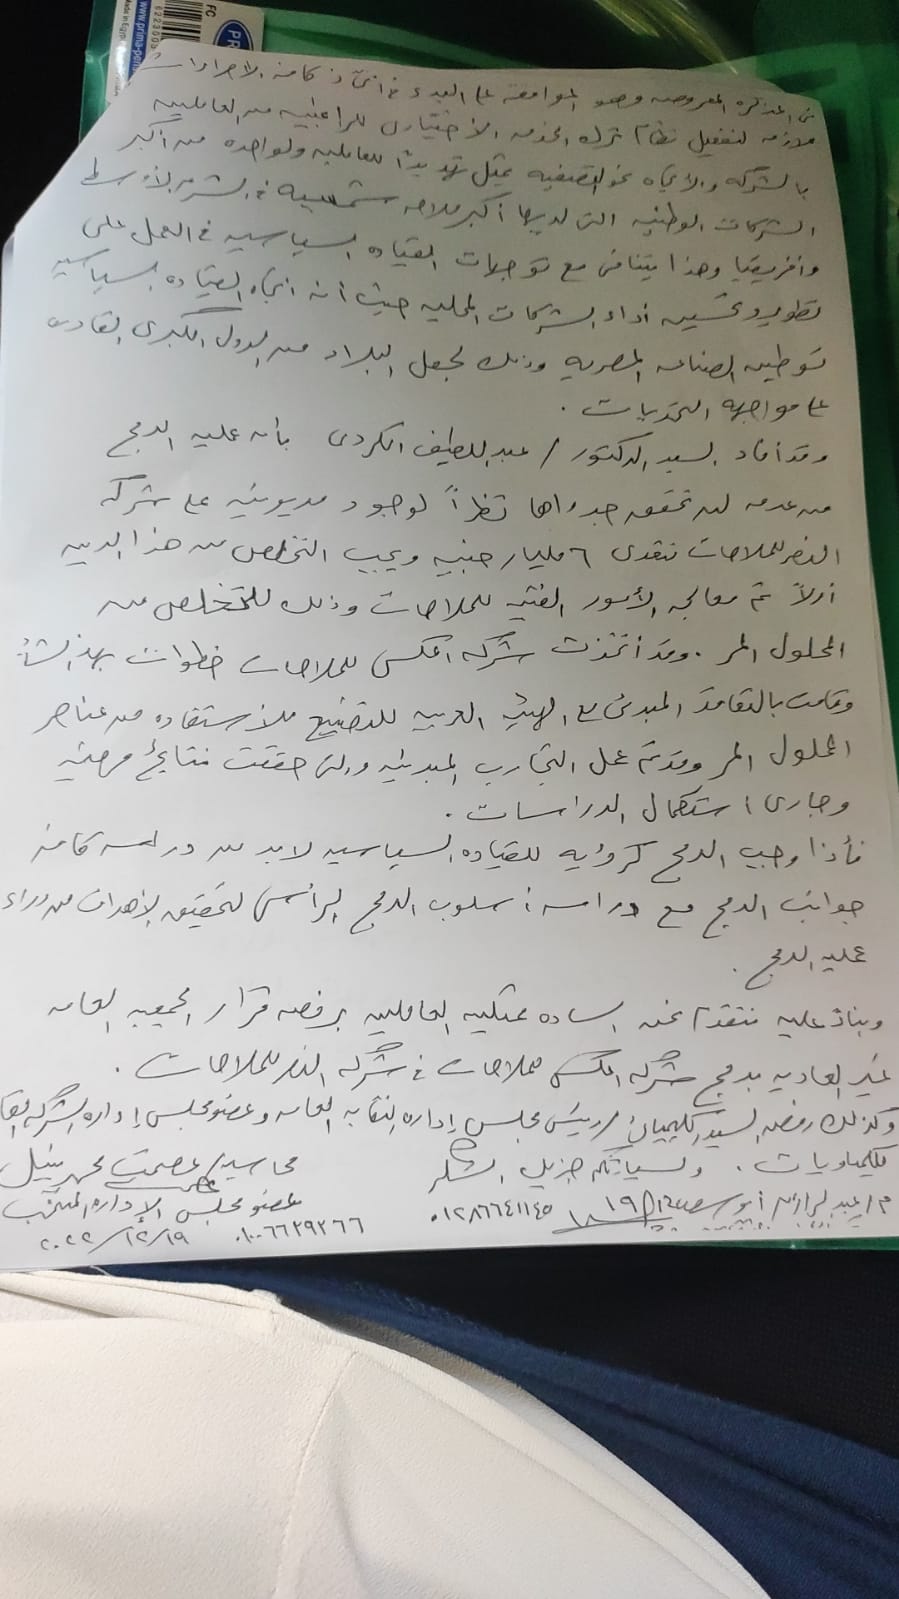 FC
6223005
PRI
www.prima-pens
Made in Egypt
فى المذكره المعروضه وهو الموافقه على البدء فى اتخاذ كافة الاجراءات
اللازمه لتفعيل نظام ترك الخدمه الأختيارى للراغبيه من العامليه
بالشركه والأتجاه نحو التصفيه يمثل تهديدًا للعامليه ولواحده من أكبر
الشركات الوطنيه التى لديها أكبر ملاحه شمسيه فى الشرق الأوسط
وافريقيا وهذا يتنافى مع توجهات القياده السياسيه فى العمل على
تطوير وتحسين اداء الشركات المحليه حيث أنه اتجاه القياده السياسيه
توطين الصناعه المصريه وذلك لجعل البلاد من الدول الكبرى القادره
على مواجهه التحديات .
وقد أفاد السيد الدكتور / عبد اللطيف الكردى بأنه عملية الدمج
من عدمه لن تحقق جدواها نظراً لوجود مديونيه على شركه
النصر للملاحات تتعدى ٦ مليار جنيه ويجب التخلص من هذا الدين
أولاً ثم معالجه الأمور الفنيه للملاحات وذلك للتخلص من
المحلول المر . وقد اتخذت شركه المكس للملاحات خطوات بهذا الشأن
وقامت بالتعاقد المبدئى مع الهيئه العربيه للتصنيع للأستفاده من عناصر
المحلول المر وقد تم عمل التجارب المبدئيه والتى حققت نتائج مرضيه
وجارى استكمال الدراسات .
فأذا وجب الدمج كرؤيه للقياده السياسيه لابد من دراسه كافة
جوانب الدمج مع دراسه اسلوب الدمج الرأسى لتحقيق الأهداف من وراء
عمليه الدمج .
وبناءً عليه نتقدم نحن الساده ممثلين العاملين برفض قرار الجمعيه العامه
غير العاديه بدمج شركه المكس للملاحات فى شركه النصر للملاحات .
وكذلك رفض السيد الكيميائى / رئيس مجلس إداره النقابه العامه وعضو مجلس إداره الشركه القا
للكيماويات . ولسيادتكم جزيل الشكر
محاسب / عصمت محمد نبيل
م / عبد الرازق أبو ١٩
عضو مجلس الإداره المنتخب
٠١٢٨٦٦٤١١٤٥
٠١٠٠٦٦٢٩٢٦٦
٢٠٢٢/١٢/١٩